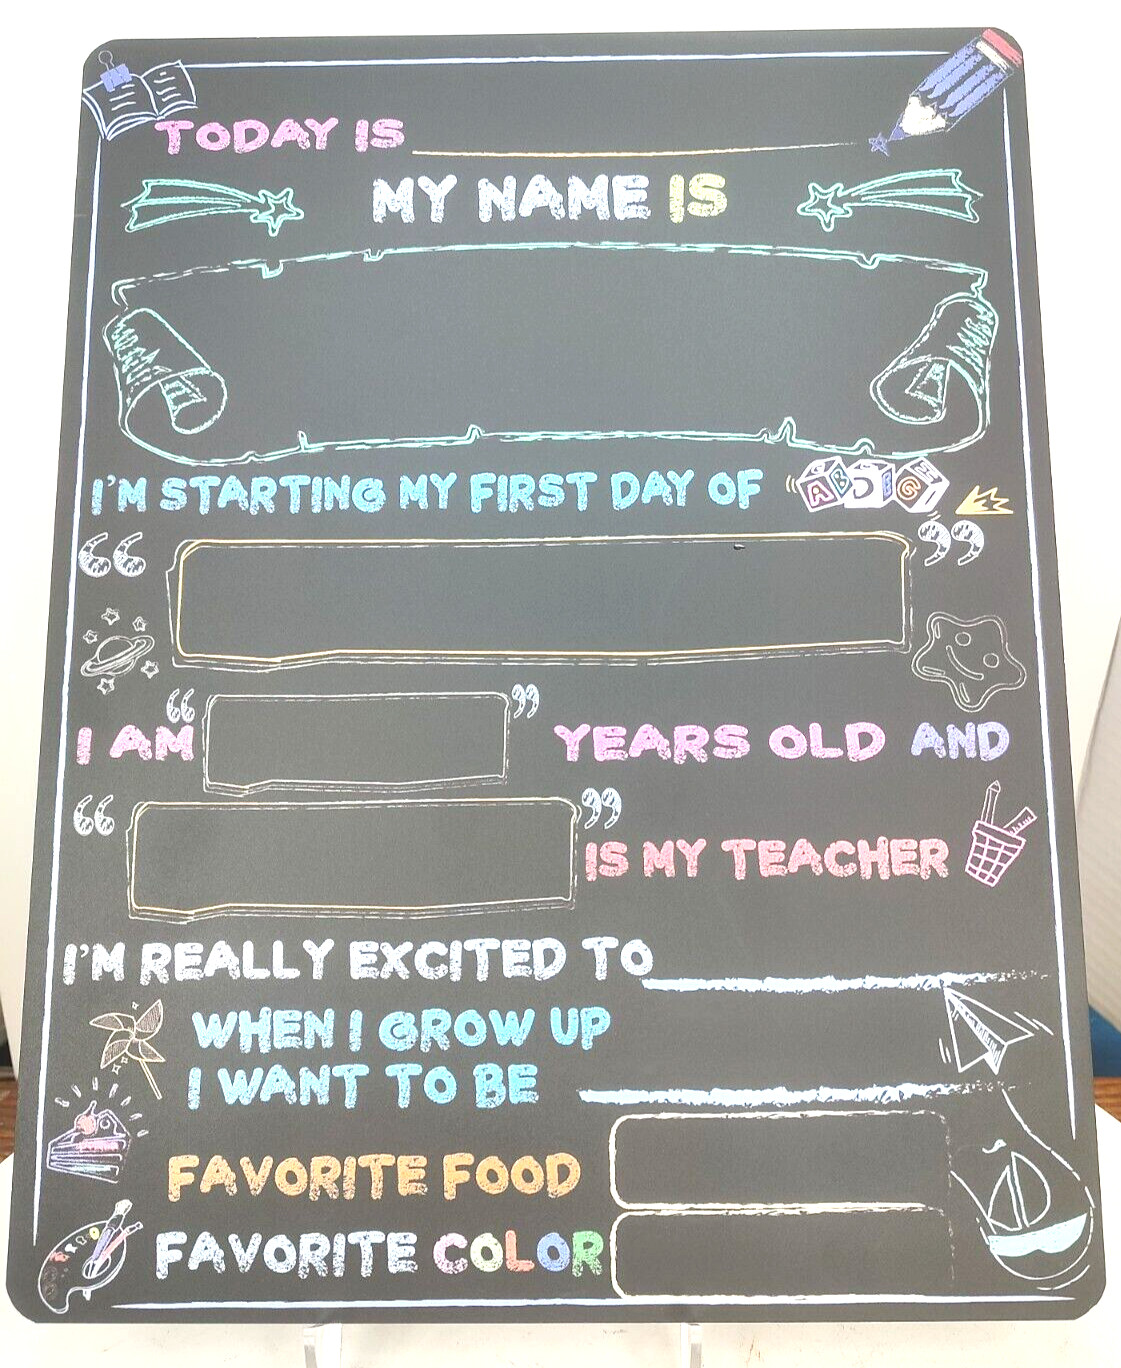 TODAY IS
MY NAME IS
I'M STARTING MY FIRST DAY OF
“ ”
I AM “ ” YEARS OLD AND
“ ” IS MY TEACHER
I'M REALLY EXCITED TO
WHEN I GROW UP
I WANT TO BE
FAVORITE FOOD
FAVORITE COLOR